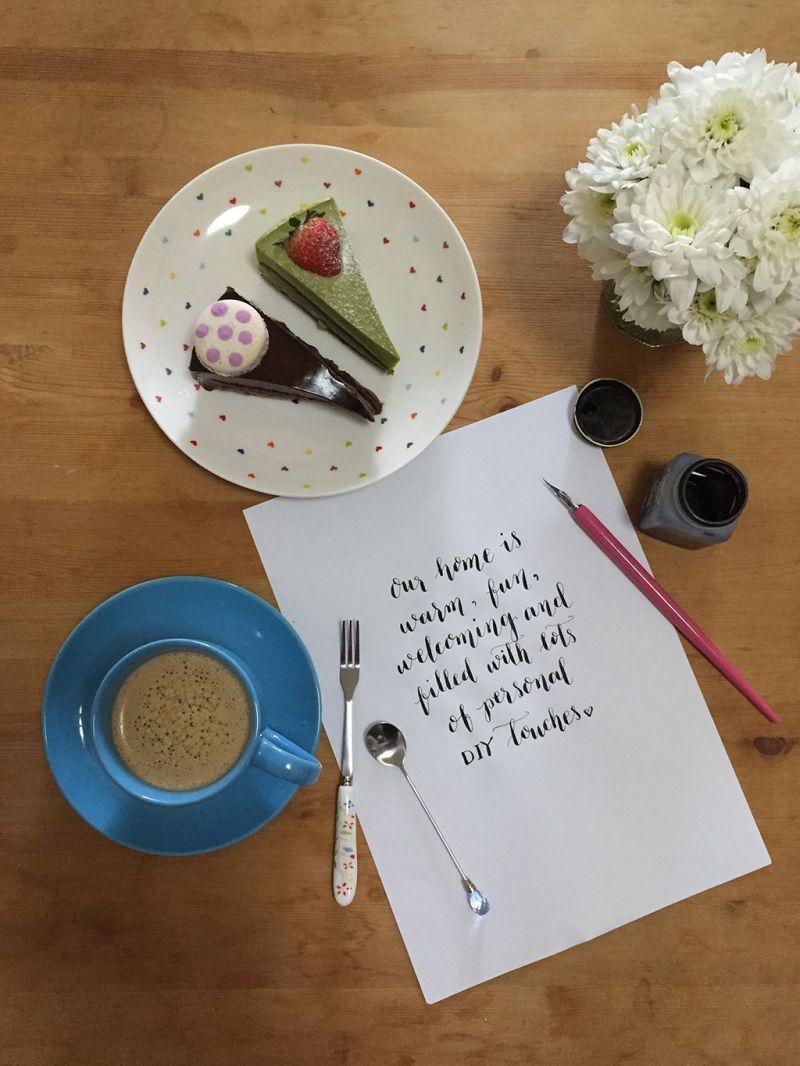 our home is
warm, fun,
welcoming and
filled with lots
of personal
DIY touches♡